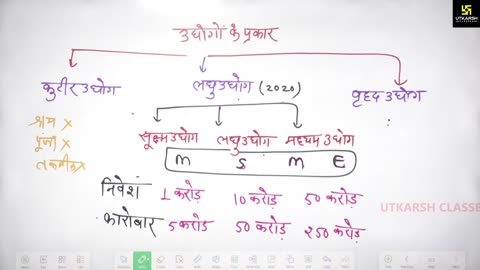 उद्योगों के प्रकार
UTKARSH
कुटीर उद्योग लघु उद्योग (2020) वृहद उद्योग
श्रम x
पूंजी x
तकनीक x
सूक्ष्म उद्योग लघु उद्योग मध्यम उद्योग
M S M E
निवेश 1 करोड़ 10 करोड़ 50 करोड़
कारोबार 5 करोड़ 50 करोड़ 250 करोड़
UTKARSH CLASSE